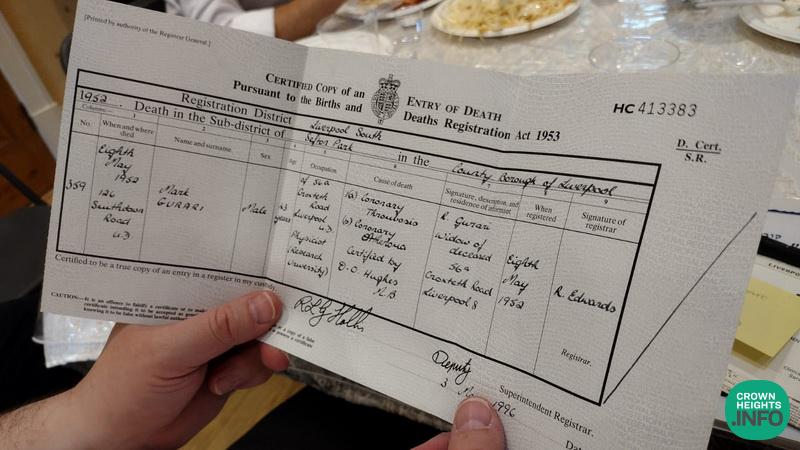 [Printed by authority of the Registrar General.]
CERTIFIED COPY of an ENTRY OF DEATH
Pursuant to the Births and Deaths Registration Act 1953
HC 413383
D. Cert.
S.R.
Registration District Liverpool South
1952. Death in the Sub-district of Sefton Park in the County Borough of Liverpool
Columns:- 1 2 3 4 5 6 7 8 9
No. When and where died Name and surname Sex Age Occupation Cause of death Signature, description, and residence of informant When registered Signature of registrar
359
Eighth
May
1952
126
Smithdown
Road
U.D.
Mark
GURARI
Male
years
of 56a
Croxteth
Road
Liverpool
U.D.
Physicist
(Research
University)
(a) Coronary
Thrombosis
(b) Coronary
Atheroma
Certified by
D. O. Hughes
M.B
R. Gurari
Widow of
deceased
56a
Croxteth Road
Liverpool 8
Eighth
May
1952
R. Edwards
Registrar.
Certified to be a true copy of an entry in a register in my custody.
Deputy Superintendent Registrar.
3 1996
CAUTION:- It is an offence to falsify a certificate or to make
LIVERPOOL
CROWN
HEIGHTS
.INFO